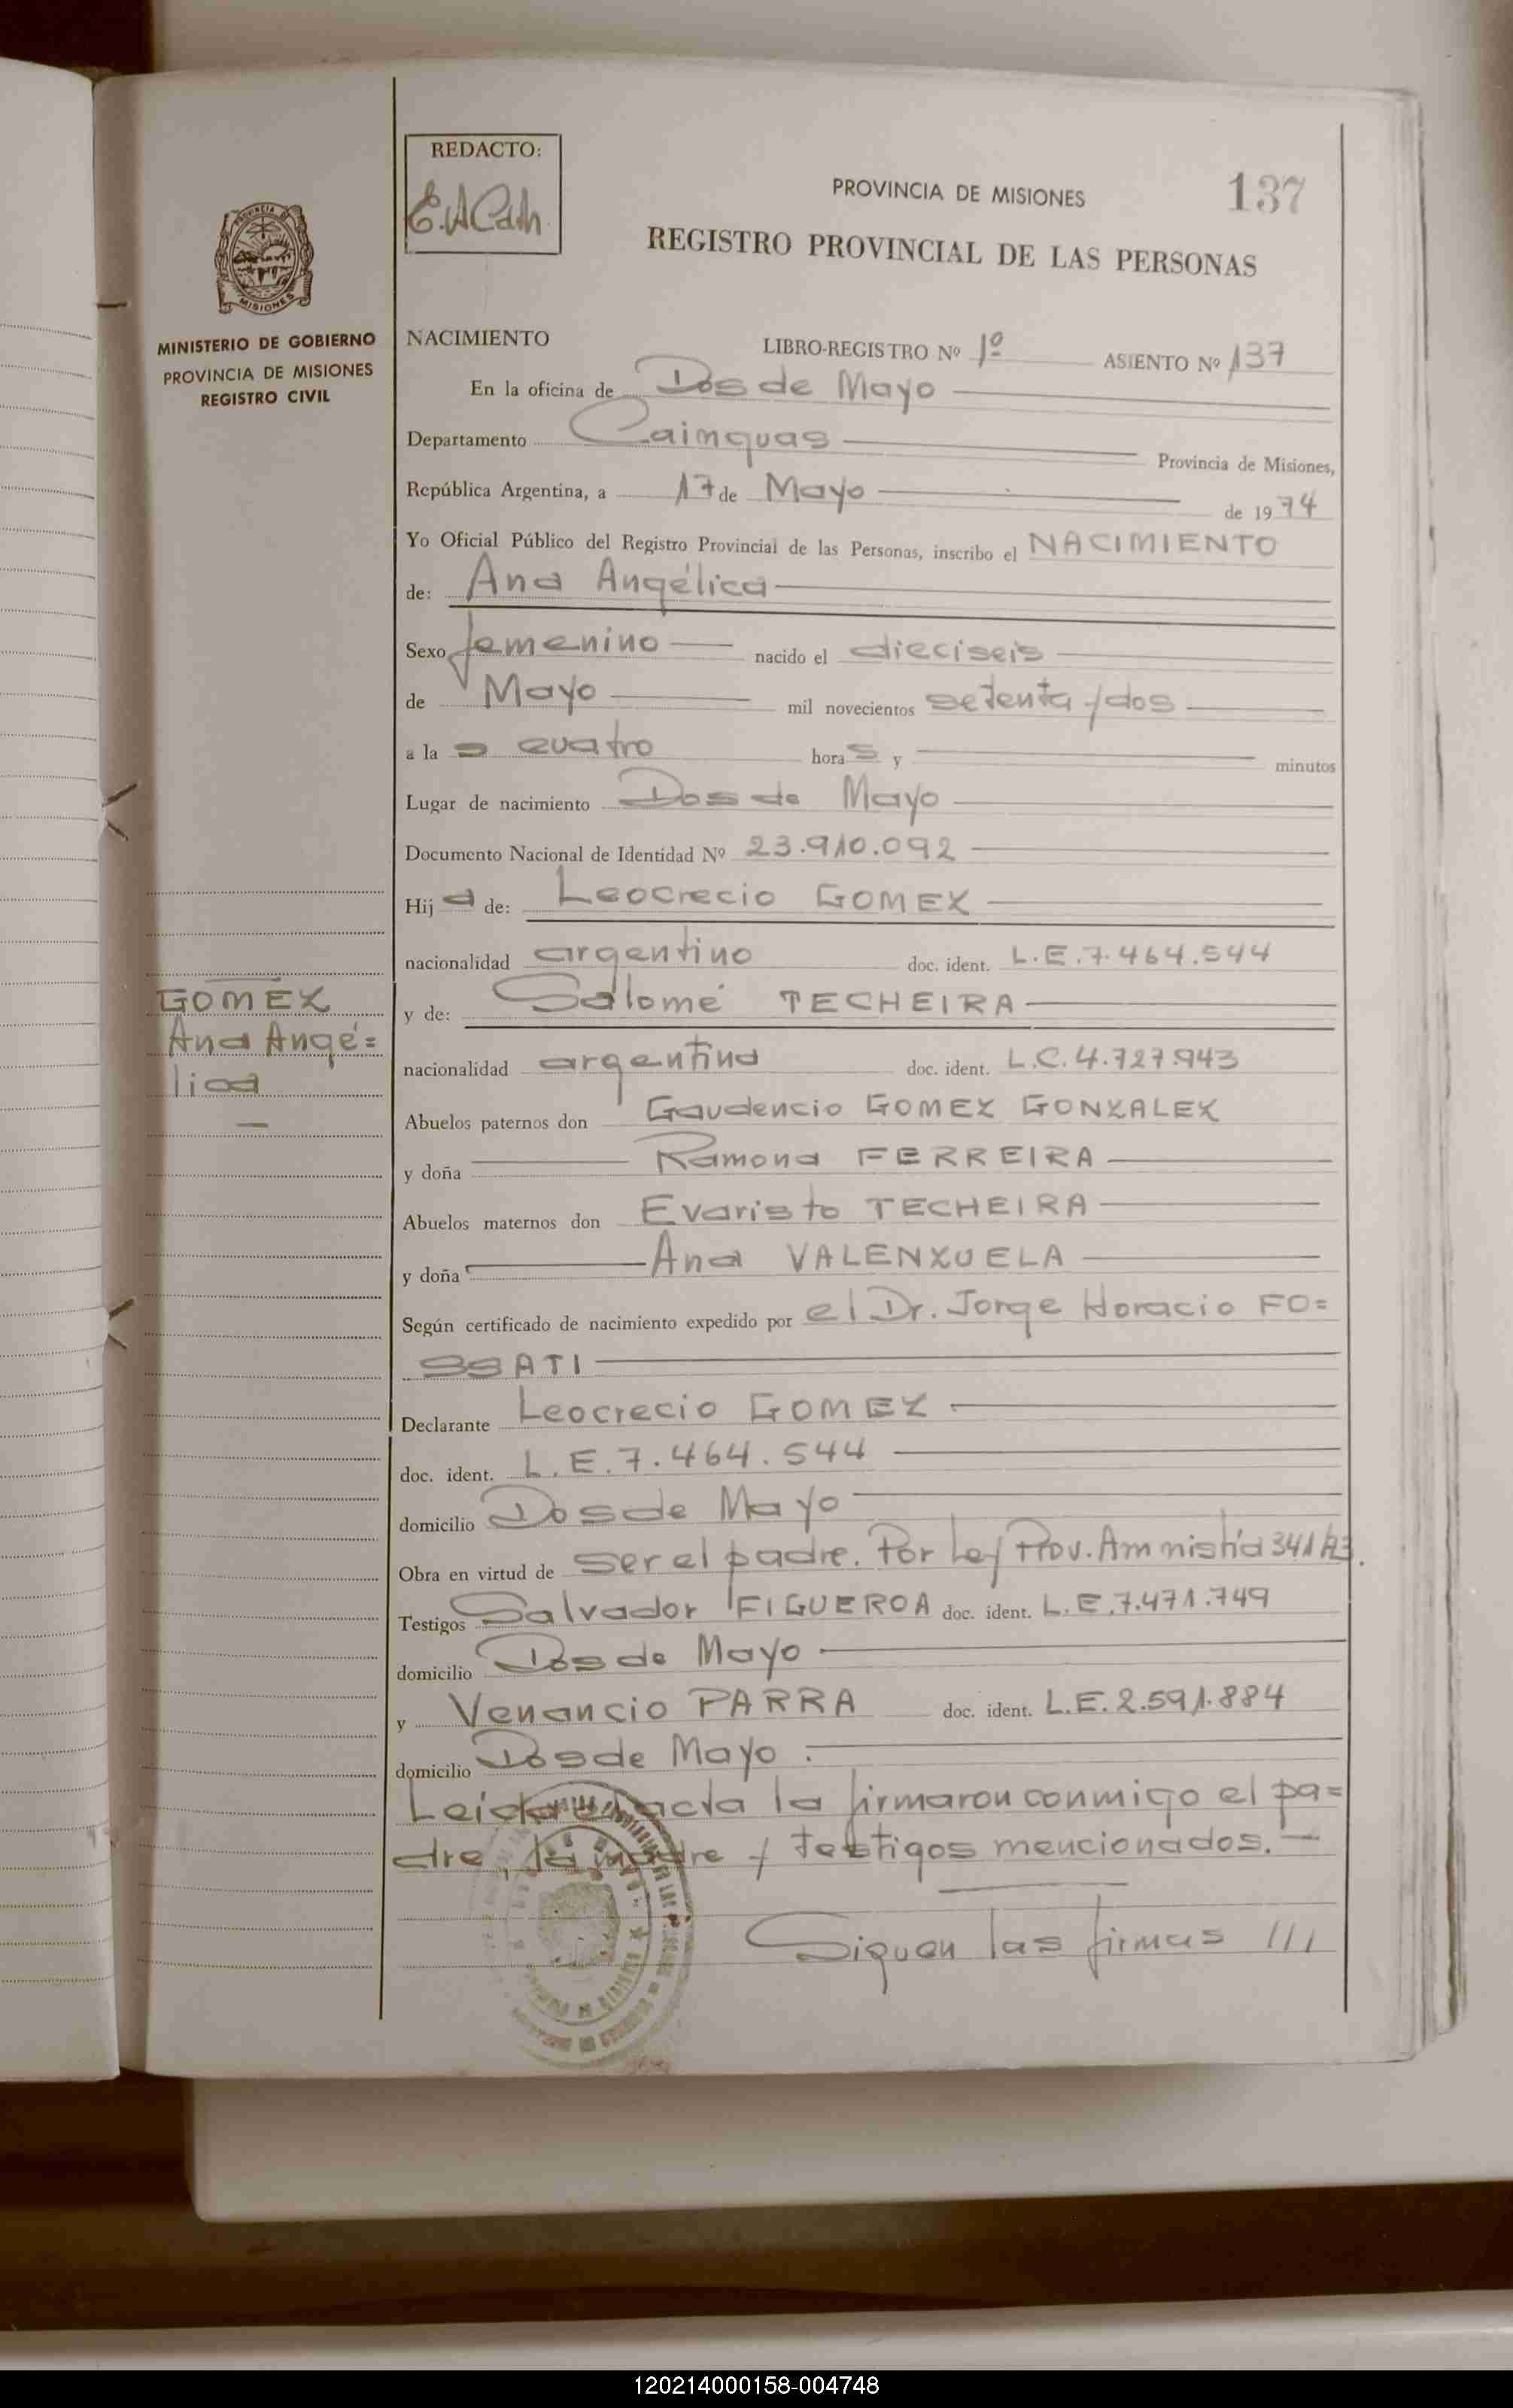 REDACTO:
PROVINCIA DE MISIONES
137
REGISTRO PROVINCIAL DE LAS PERSONAS
MISIONES
MINISTERIO DE GOBIERNO
PROVINCIA DE MISIONES
REGISTRO CIVIL
NACIMIENTO LIBRO-REGISTRO Nº 1º ASIENTO Nº 137
En la oficina de Dos de Mayo
Departamento Cainguas Provincia de Misiones,
República Argentina, a 17 de Mayo de 1974
Yo Oficial Público del Registro Provincial de las Personas, inscribo el NACIMIENTO
de: Ana Angélica
Sexo femenino nacido el dieciseis
de Mayo mil novecientos setenta y dos
a la s cuatro horas y minutos
Lugar de nacimiento Dos de Mayo
Documento Nacional de Identidad Nº 23.910.092
Hij a de: Leocrecio GOMEZ
nacionalidad argentino doc. ident. L.E.7.464.544
GOMEZ
Ana Angé=
lica
y de: Salomé TECHEIRA
nacionalidad argentina doc. ident. L.C.4.727.943
Abuelos paternos don Gaudencio GOMEZ GONZALEZ
y doña Ramona FERREIRA
Abuelos maternos don Evaristo TECHEIRA
y doña Ana VALENZUELA
Según certificado de nacimiento expedido por el Dr. Jorge Horacio FO=
SSATI
Declarante Leocrecio GOMEZ
doc. ident. L.E.7.464.544
domicilio Dos de Mayo
Obra en virtud de ser el padre. Por Ley Prov. Amnistía 341/73.
Testigos Salvador FIGUEROA doc. ident. L.E.7.471.749
domicilio Dos de Mayo
y Venancio PARRA doc. ident. L.E.2.591.884
domicilio Dos de Mayo.
Leida el acta la firmaron conmigo el pa=
dre, la madre y testigos mencionados.
Siguen las firmas ///
120214000158-004748